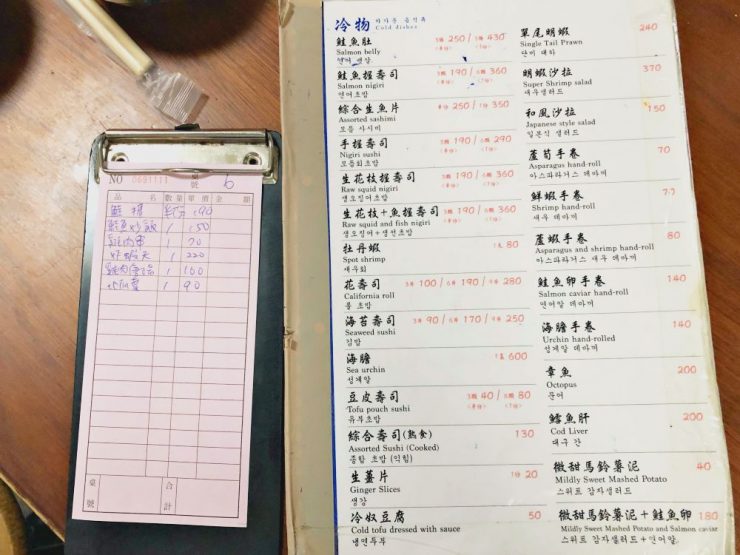 NO 0691113 桌號 6
品 名 數量 單價 金 額
1 150
1 70
1 220
1 160
1 90
桌號 合計
冷物
Cold dishes
鮭魚肚 250/ 430
Salmon belly
연어 뱃살
鮭魚握壽司 190/ 360
Salmon nigiri
연어초밥
綜合生魚片 250/ 350
Assorted sashimi
모듬 사시미
手握壽司 190/ 290
Nigiri sushi
모듬회초밥
生花枝握壽司 190/ 360
Raw squid nigiri
생오징어초밥
生花枝+魚握壽司 190/ 360
Raw squid and fish nigiri
생오징어+생선초밥
牡丹蝦 80
Spot shrimp
새우회
花壽司 100/ 190/ 280
California roll
롤 초밥
海苔壽司 90/ 170/ 250
Seaweed sushi
김밥
海膽 600
Sea urchin
성게알
豆皮壽司 40/ 80
Tofu pouch sushi
유부초밥
綜合壽司(熟食) 130
Assorted Sushi (Cooked)
종합 초밥 (익힘)
生薑片 20
Ginger Slices
생강
冷奴豆腐 50
Cold tofu dressed with sauce
냉연두부
單尾明蝦 240
Single Tail Prawn
단미 대하
明蝦沙拉 370
Super Shrimp salad
새우샐러드
和風沙拉 150
Japanese style salad
일본식 샐러드
蘆筍手卷 70
Asparagus hand-roll
아스파라거스 데마끼
鮮蝦手卷
Shrimp hand-roll
새우 데마끼
蘆蝦手卷 80
Asparagus and shrimp hand-roll
아스파라거스 새우 데마끼
鮭魚卵手卷 140
Salmon caviar hand-roll
연어알 데마끼
海膽手卷 140
Urchin hand-rolled
성게알 데마끼
章魚 200
Octopus
문어
鱈魚肝 200
Cod Liver
대구 간
微甜馬鈴薯泥 40
Mildly Sweet Mashed Potato
스위트 감자샐러드
微甜馬鈴薯泥+鮭魚卵 180
Mildly Sweet Mashed Potato and Salmon caviar
스위트 감자샐러드+연어알